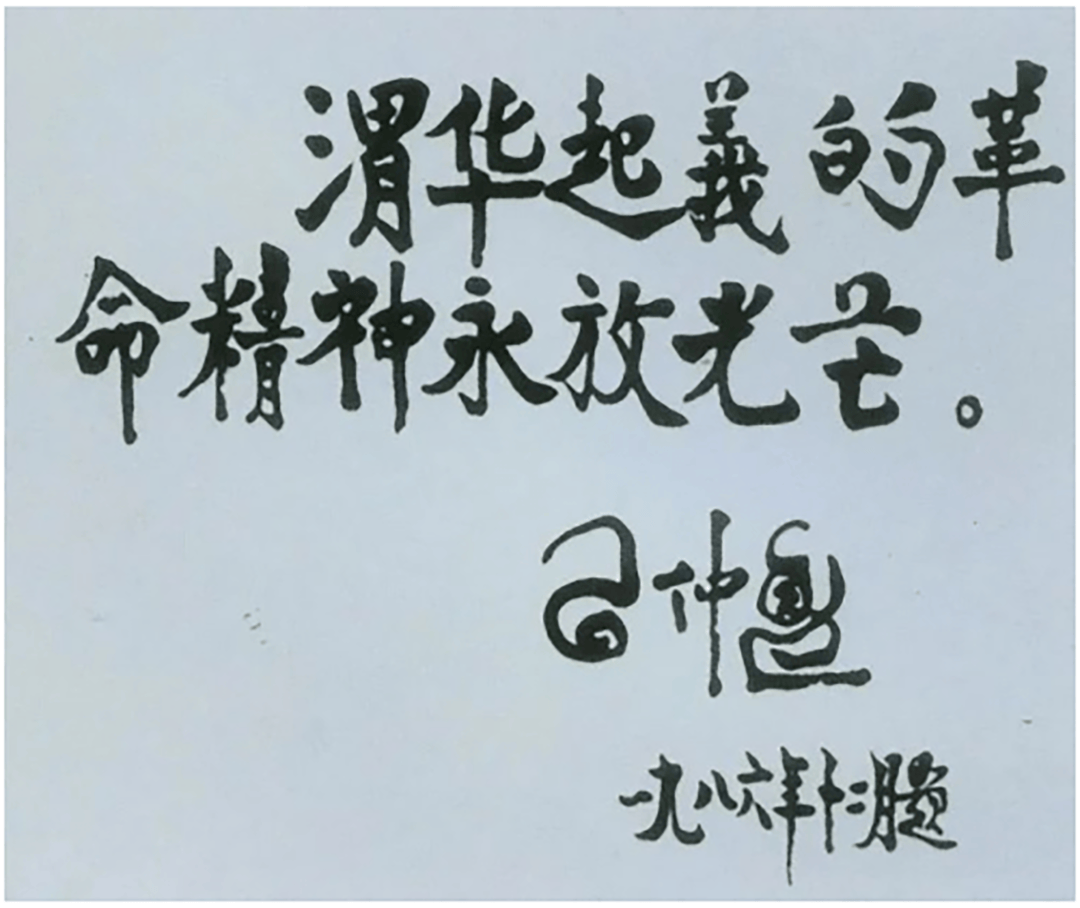 渭华起義的革
命精神永放光芒。
习仲勳
一九八六年十二月题